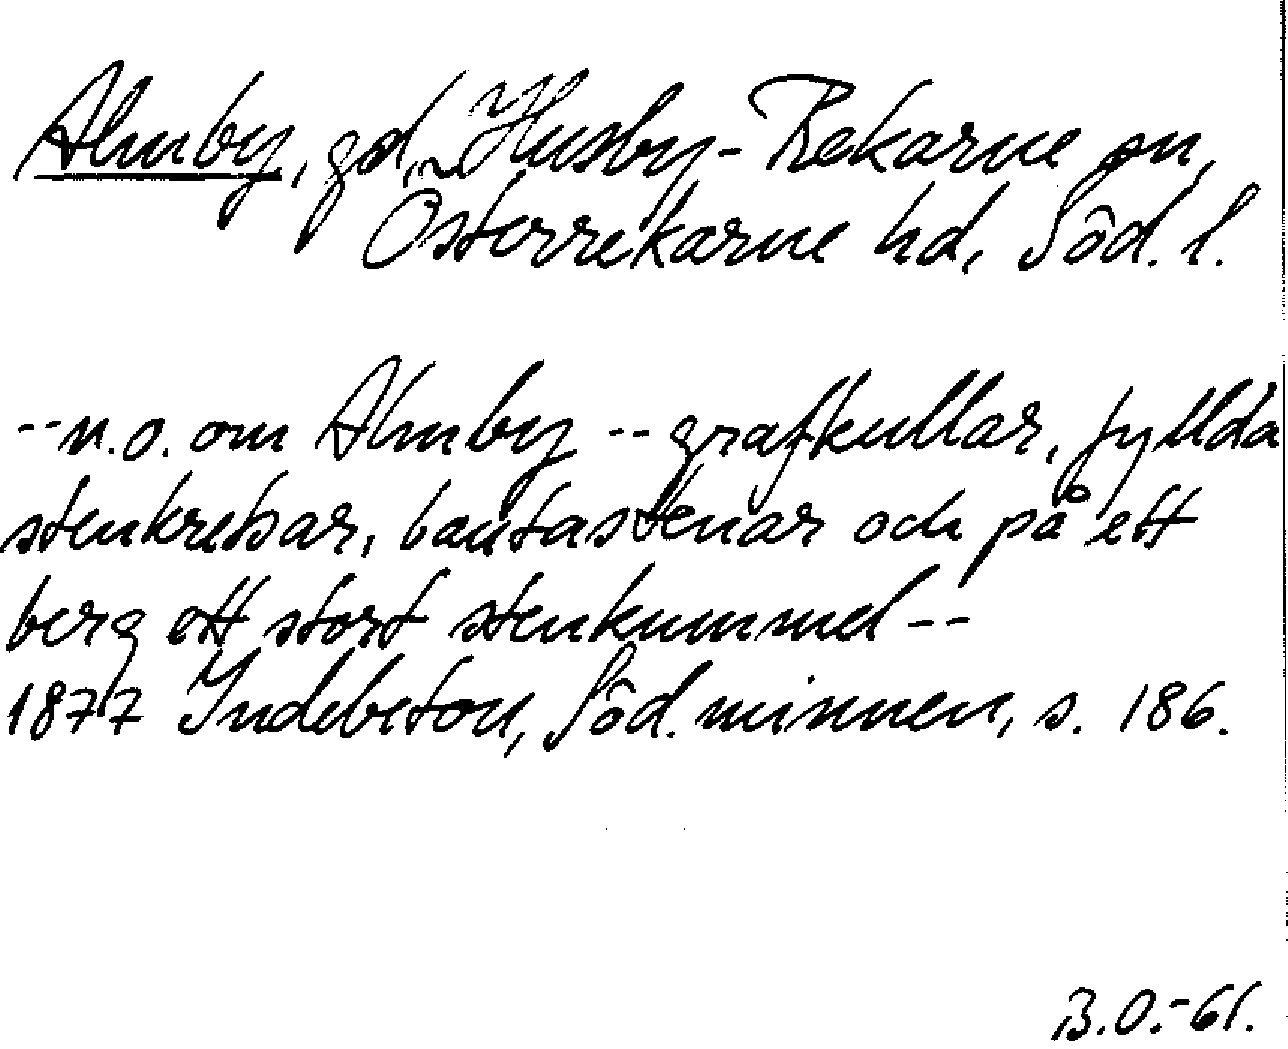 Almby, gd, Husby-Rekarne sn,
Österrekarne hd, Söd. l.
--n.o. om Almby -- grafkullar, fyllda
stenkretsar, bautastenar och på ett
berg ett stort stenkummel --
1877 Indebetou, Söd. minnen, s. 186.
B.O.-61.